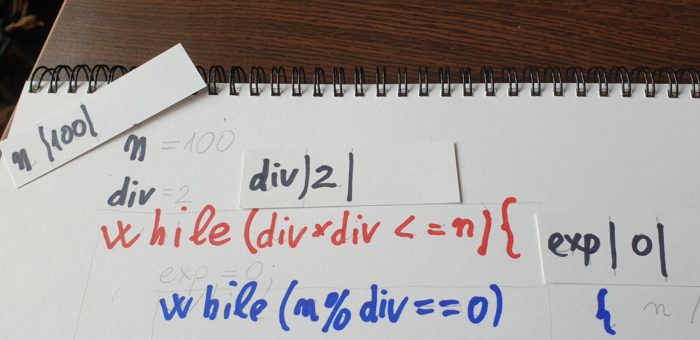 n |100|
n = 100
div|2|
div = 2
while (div*div <= n) {
exp| 0|
exp = 0;
while (n%div == 0)
{ n /